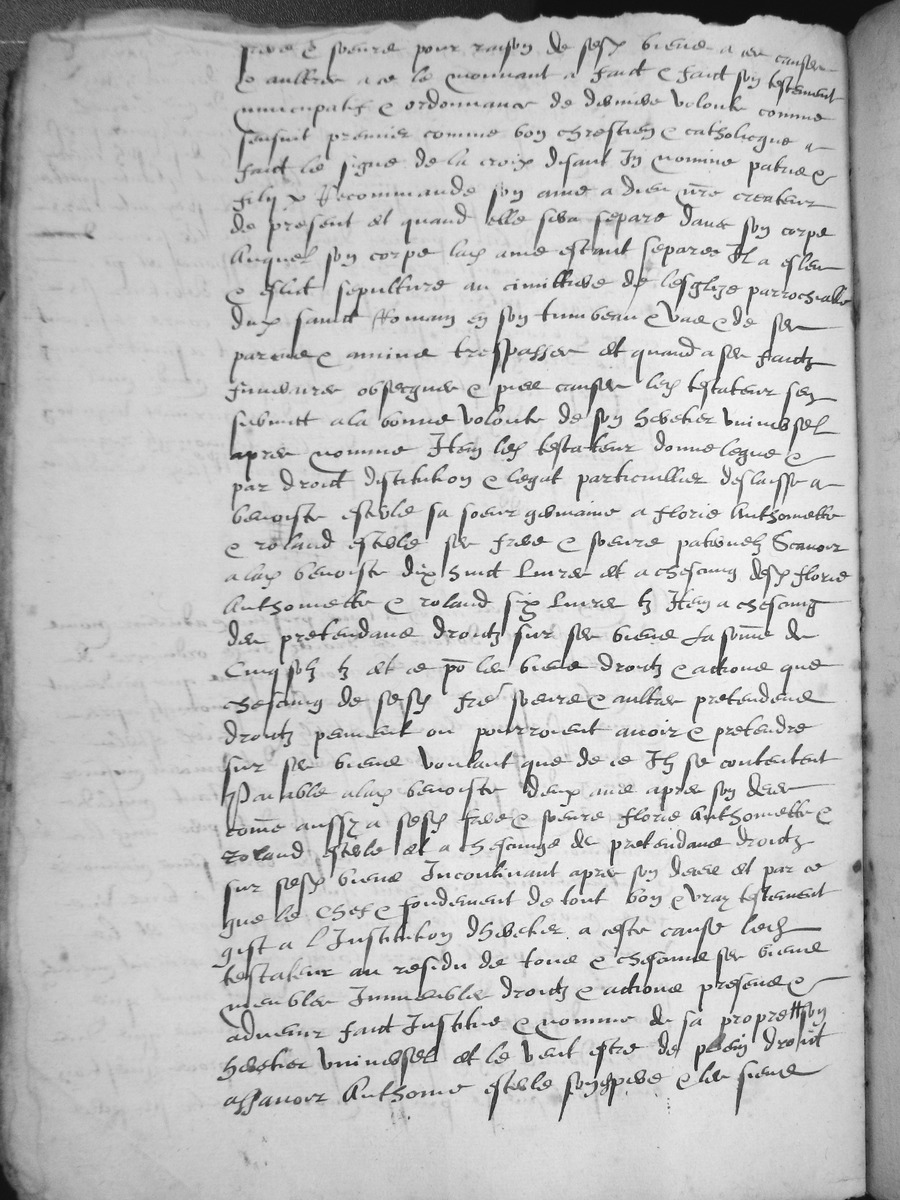 frere & soeurs pour raison de sesd biens a ces causes
& aultres a ce le mouvant a faict & faict son testement
nuncupatif & ordonnance de derniere volonte comme
sensuit premier comme bon chrestien & catholicque a
faict le signe de la croix disant In nomine patris &
filij & Recommande son ame a dieu nre createur
de present et quand elle sera separe dans son corps
Auquel son corps lad ame estant separee Il a esleu
& eslict sepulture au cimittiere de lesglize parrochialle
dud sainct Romain en son tumbeau & vas & de ses
parens & amins trespasses et quand a ses faictz
funeraires obsecques & pies causes led testateur sen
submit a la bonne volonte de son heretier universel
apres nomme Item led testateur donne legue &
par droict distitution & legat particullier deslaisse a
benoiste esteble sa soeur germaine a florie Anthomette
& roland esteble ses frere & soeurs paternelz Scavoir
a lad benoiste dix huict Livres et a chescung desd florie
Anthomette & roland six Livres tz Item a chescung
des pretendans droictz sur ses biens La some de
Cinq solz tz et ce po les biens droictz & actions que
chescung de sesd fre soeurs & aultres pretendens
droictz peuvent ou pourroient avoir & pretendre
sur ses biens voulant que de ce Ilz se contentent
Paiable a lad benoiste deux ans apres son deces
come aussy a sesd frere & soeurs florie Anthomette &
roland esteble et a chescungs de pretendans droictz
sur sesd biens Incontinant apres son deces et par ce
que le chef & fondement de tout bon & vray testement
gist a l'Institution dheretier a ceste cause led
testateur au residu de tous & chescuns ses biens
meubles Immeubles droictz & actions presens &
advenir faict Institue & nomme de sa propre son
heretier universel et le veut estre de plein droict
assavoir Anthome esteble son pere & les siens